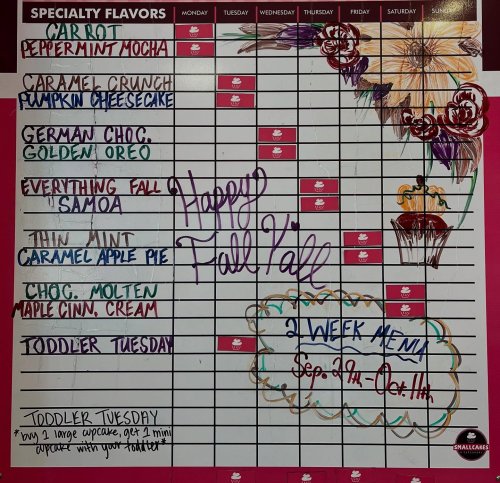 SPECIALTY FLAVORS MONDAY TUESDAY WEDNESDAY THURSDAY FRIDAY SATURDAY SUNDAY
CARROT
PEPPERMINT MOCHA
CARAMEL CRUNCH
PUMPKIN CHEESECAKE
GERMAN CHOC.
GOLDEN OREO
EVERYTHING FALL
SAMOA
Happy
Fall Y'all
THIN MINT
CARAMEL APPLE PIE
CHOC. MOLTEN
MAPLE CINN. CREAM
2 WEEK MENU
Sep. 29th - Oct. 11th
TODDLER TUESDAY
TODDLER TUESDAY
*buy 1 large cupcake, get 1 mini
cupcake with your toddler*
SMALLCAKES